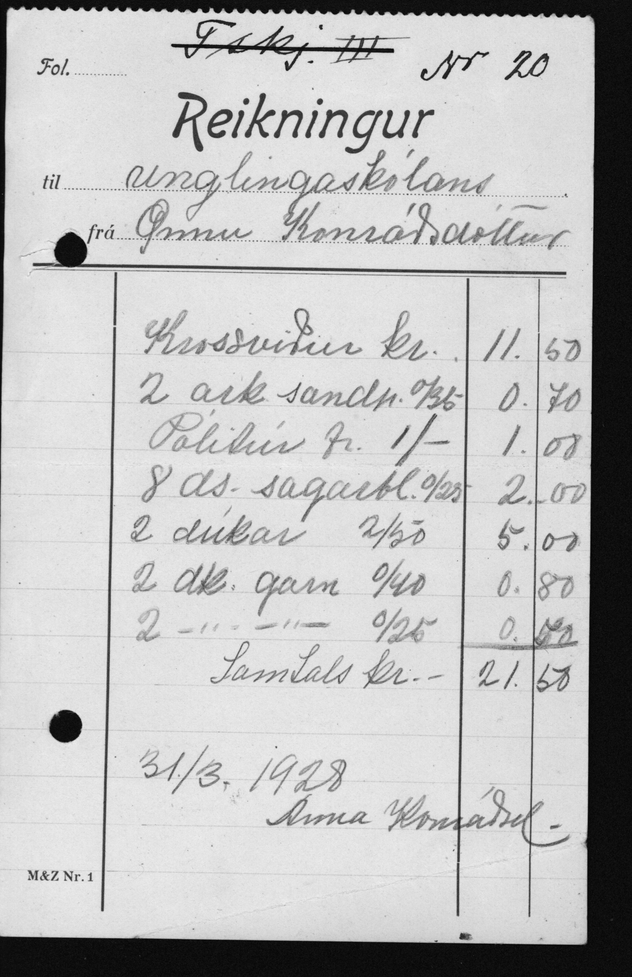 Fskj. III
Fol. Nr 20
Reikningur
til unglingaskólans
frá Önnu Konráðsdóttur
Krossviður kr. 11.50
2 ark sandp. 0/35 0.70
Pólitúr fr. 1/- 1.00
8 ds. sagarbl. 0/25 2.00
2 dúkar 2/50 5.00
2 dk. garn 0/40 0.80
2 -"- -"- 0/25 0.50
Samtals kr.- 21.50
31/3. 1928
Anna Konráðsd-
M&Z Nr. 1